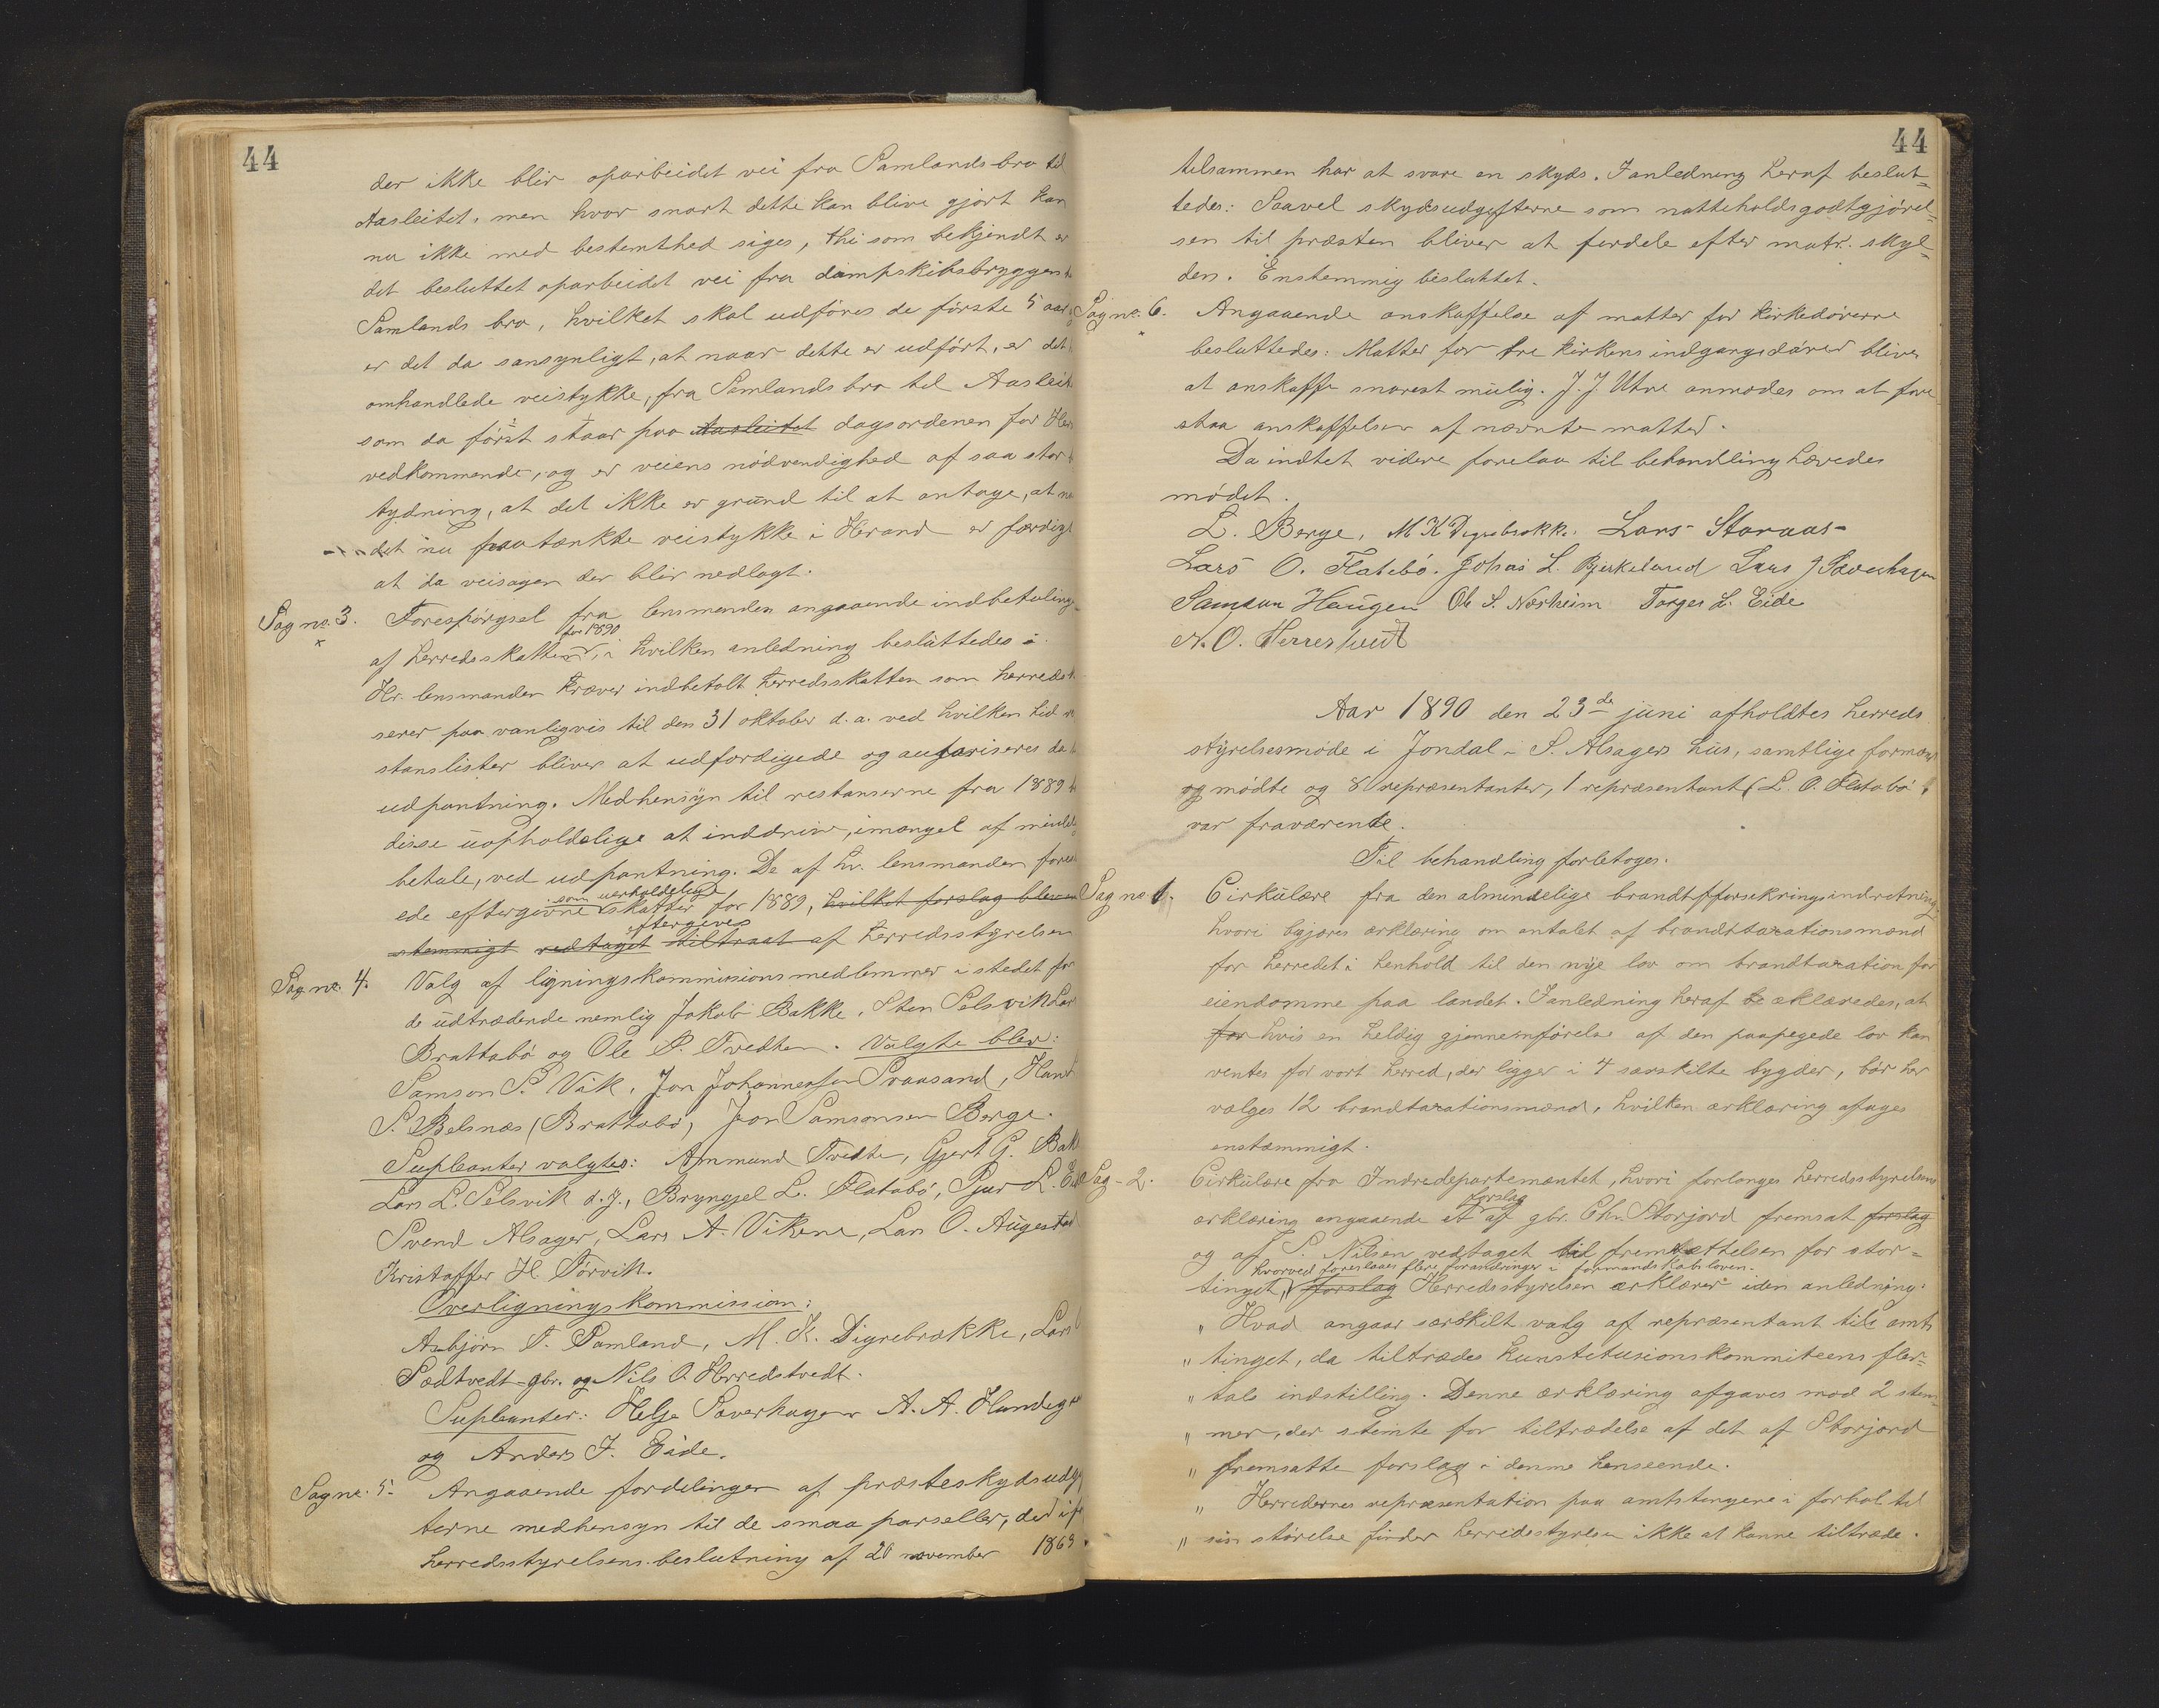 44
der ikke blir oparbeidet vei fra Samlandsbro til
Aasleitet, men hvor snart dette kan blive gjort kan
nu ikke med bestemthed siges, thi som bekjendt er
det besluttet oparbeidet vei fra dampskibsbryggen
Samlands bro, hvilket skal udføres de første 5 aar
er det da sansynligt, at naar dette er udført, er det
omhandlede veistykke, fra Samlands bro til Aasleit
som da først staar paa Aasleitet dagsordenen for
vedkommende, og er veiens nødvendighed af saa stor
tydning, at det ikke er grund til at antage, at
det nu paatænkte veistykke i Herand er færdigt
at da veisagen der blir nedlagt.
Sag no. 3. Forespørgsel fra lensmanden angaaende indbetaling
for 1890
af herredsskatten, i hvilken anledning besluttedes:
Hr. lensmanden kræver indbetalt herredsskatten som herreds
serer paa vanligvis til den 31 oktober d.a. ved hvilken tid
stanslister bliver at udfærdigede og autoriseres
udpantning. Medhensyn til restanserne fra 1889
disse uopholdelige at inddrive, i mangel af mindelig
betale, ved udpantning. De af hr. lensmanden
som uerholdelige
ede eftergivne skatter for 1889, hvilket forslag
eftergives
stemmigt vedtaget tiltraat af herredsstyrelsen
Sag no. 4. Valg af ligningskommissionsmedlemmer i stedet for
de udtrædende nemlig Jakob Bakke, Sten Selsvik Lars
Brattabø og Ole P. Tvedten. Valgte blev:
Samson S. Vik, Jon Johannessen Svaasand,
S. Belsnæs (Brattabø), Jon Samsonsen Berge.
Supleanter valgtes: Ammund Tvedte, Gjert G. Bak
Lars L. Selsvik d.y., Bryngjel L. Flatabø, Sjur L. Eide
Svend Alsager, Lars A. Vikene, Lars O. Augestad
Kristoffer H. Torvik.
Overligningskommission:
Asbjørn T. Samland, M. K. Digrebrække, Lars
Sædtvedt gbr. og Nils O. Herredstvedt.
Supleanter: Helje Saverhagen A. A.
og Anders J. Eide.
Sag no. 5. Angaaende fordelingen af præsteskydsudgif
terne medhensyn til de smaa parseller, der i
herredsstyrelsens beslutning af 20 november 1863
44
tilsammen har at svare en skyds. I anledning heraf beslut=
tedes: Saavel skydsudgifterne som natteholdsgodtgjørel=
sen til præsten bliver at fordele efter matr. skyl=
den. Enstemmig besluttet.
Sag no. 6. Angaaende anskaffelse af matter for kirkedørerne
besluttedes: Matter for tre kirkens indgangsdører bliver
at anskaffe snarest mulig. J. J. Utne anmodes om at fore
staa anskaffelsen af nævnte matter.
Da indtet videre forelaa til behandling hævedes
mødet.
L. Berge, M K Digrebrække. Lars Staraas
Lars O. Flatebø. Johas L. Bjerkeland Lars J Saverhagen
Samson Haugen Ole S. Norheim Torger L. Eide
N. O. Herrestveit
Aar 1890 den 23de juni afholdtes herreds
styrelsesmøde i Jondal i S. Alsagers hus, samtlige formænd
og mødte og 8 repræsentanter, 1 repræsentant (L. O. Flatabø)
var fraværente.
Til behandling foretoges.
Sag no 1. Cirkulære fra den almindelige brandtforsekringsindretning
hvori bgjæres erklæring om antalet af brandttaxationsmænd
for herredet i henhold til den nye lov om brandtaxation for
eiendomme paa landet. I anledning heraf be eklæredes, at
for hvis en heldig gjennemførelse af den paapegede lov kan
ventes for vort herred, der ligger i 4 særskilte bygder, bør her
vælges 12 brandtaxationsmænd, hvilken erklæring afages
enstemmigt.
Sag - 2. Cirkulære fra Indredepartementet, hvori forlanges herredsstyrelsens
forslag
erklæring angaaende et af gbr. Chr. Storjord fremsat forslag
og af S. Nilsen vedtaget til fremsættelsen for stor=
hvorved foreslaaes flere forandringer i formandskabsloven.
tinget, forslag Herredsstyrelsen erklærer iden anledning:
" Hvad angaar særskilt valg af repræsentant til amts
" tinget, da tiltrædes kunstitusionskommiteens fler=
" tals indstilling. Denne erklæring afgaves mod 2 stem=
" mer, der stemte for tiltrædelse af det af Storjord
" fremsatte forslag i denne henseende.
" Herredernes repræsentation paa amtstingene i forhol til
" sin størelse finder herredsstyrelsen ikke at kunne tiltræde.